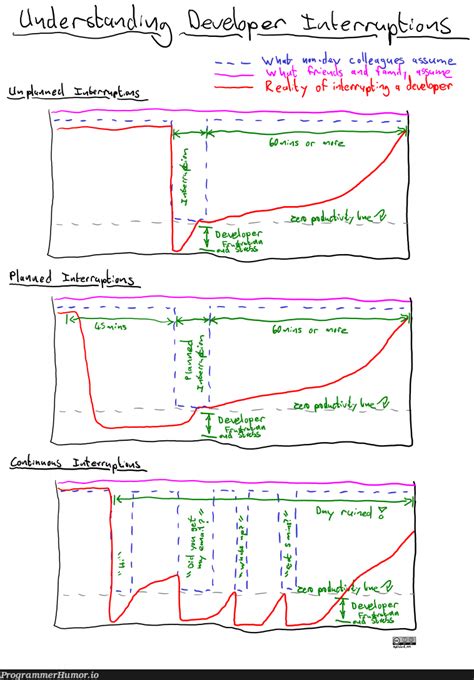 Understanding Developer Interruptions
What non-dev colleagues assume
What friends and family assume
Reality of interrupting a developer
Unplanned Interruptions
Interruption
60mins or more
zero productivity line
Developer
Frustration
and Stabs
Planned Interruptions
45mins
Planned
Interruption
60mins or more
zero productivity line
Developer
Frustration
and Stabs
Continuous Interruptions
Day ruined!
"Hi"
"Did you get
my email?"
"Got 5 mins?"
zero productivity line
Developer
Frustration
and Stabs
ProgrammerHumor.io